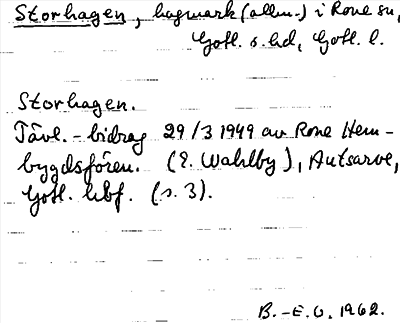 Storhagen, hagmark (allm.) i Rone sn,
Gotl. s. hd, Gotl. l.
Storhagen.
Tävl.-bidrag 29/3 1949 av Rone Hem-
bygdsfören. (E. Wahlby), Autsarve,
Gotl. hbf. (s. 3).
B.-E. O. 1962.